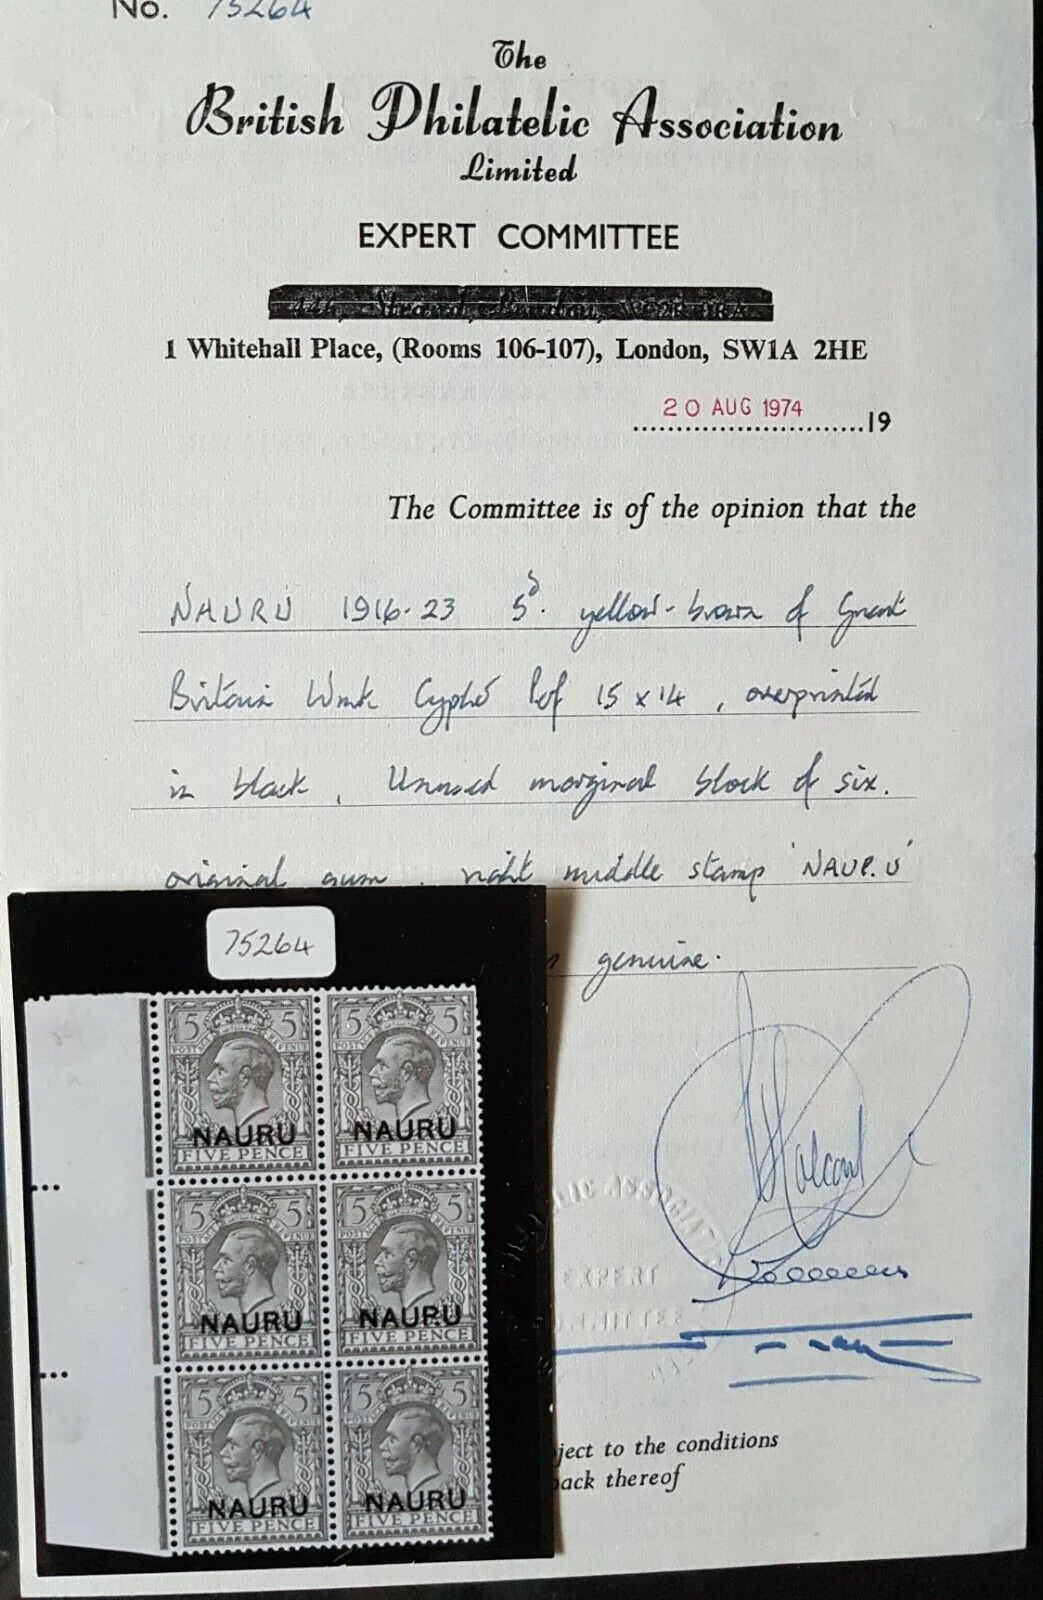 No. 75264
The
British Philatelic Association
Limited
EXPERT COMMITTEE
Strand, London, WC2R
1 Whitehall Place, (Rooms 106-107), London, SW1A 2HE
20 AUG 1974
19
The Committee is of the opinion that the
NAURU 1916-23 5d. yellow-brown of Great
Britain Wmk Cypher Perf 15 x 14, overprinted
in black, Unused marginal block of six.
original gum, right middle stamp 'NAUP.U'
genuine.
75264
5 5 5 5
POSTAGE REVENUE POSTAGE REVENUE
NAURU NAURU
FIVE PENCE FIVE PENCE
5 5 5 5
POSTAGE REVENUE POSTAGE REVENUE
NAURU NAUP.U
FIVE PENCE FIVE PENCE
5 5 5 5
POSTAGE REVENUE POSTAGE REVENUE
NAURU NAURU
FIVE PENCE FIVE PENCE
LIC ASSOCIATI
EXPERT
MITTEE
ject to the conditions
back thereof